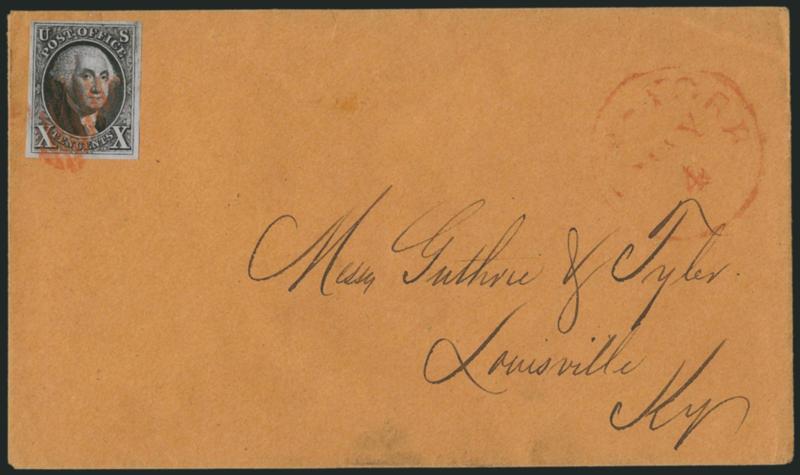 U S
POST OFFICE
X TEN CENTS X
YORK
MAY
4
Messrs Guthrie & Tyler.
Louisville
Ky